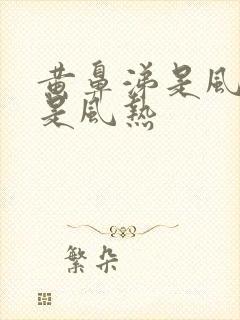 黄鼻涕是風
是風热
繁朵